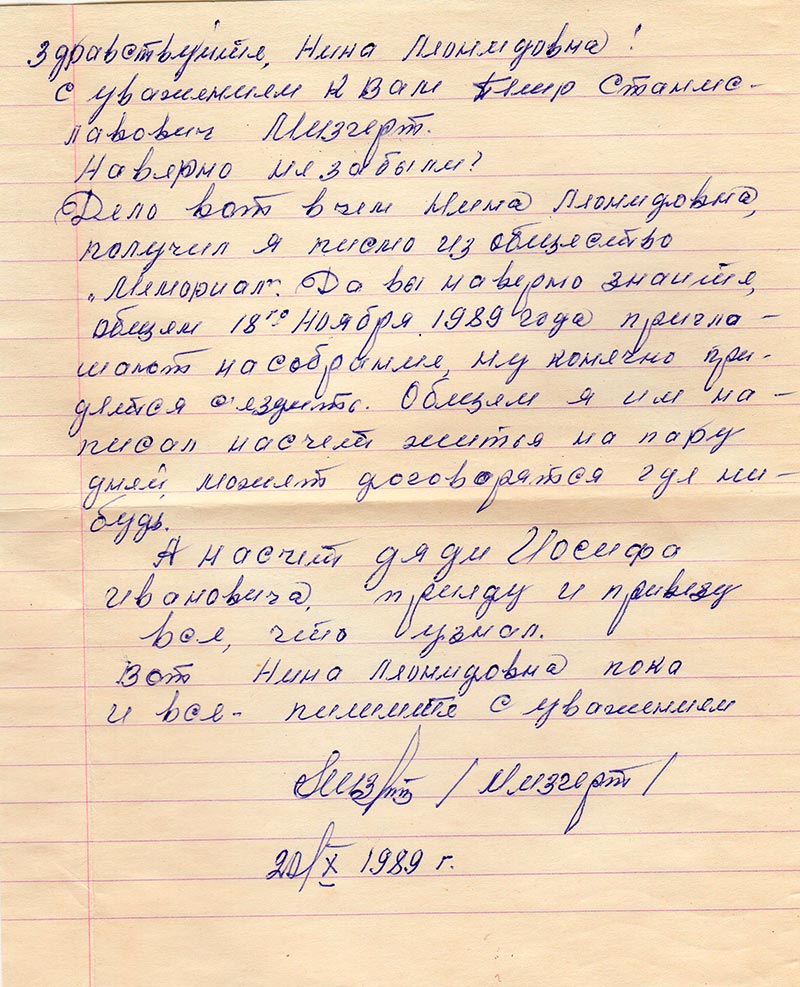 Здравствуйте, Нина Леонидовна!
С уважением к Вам Темир Станис-
лавович Мизгерт.
Наверно не забыли?
Дело вот в чем Нина Леонидовна,
получил я писмо из общество
„Мемориал". Да вы наверно знаите,
общем 18го Ноября 1989 года пригла-
шают на собрание, ну конечно при-
дется с'ездить. Общем я им на-
писал насчет житья на пару
дней, может договорятся где ни-
будь.
А насчет дяди Иосифа
Ивановича, приеду и привезу
все, что узнал.
Вот Нина Леонидовна пока
и все - пишите с уважением
/Мизгерт/
20/X 1989 г.